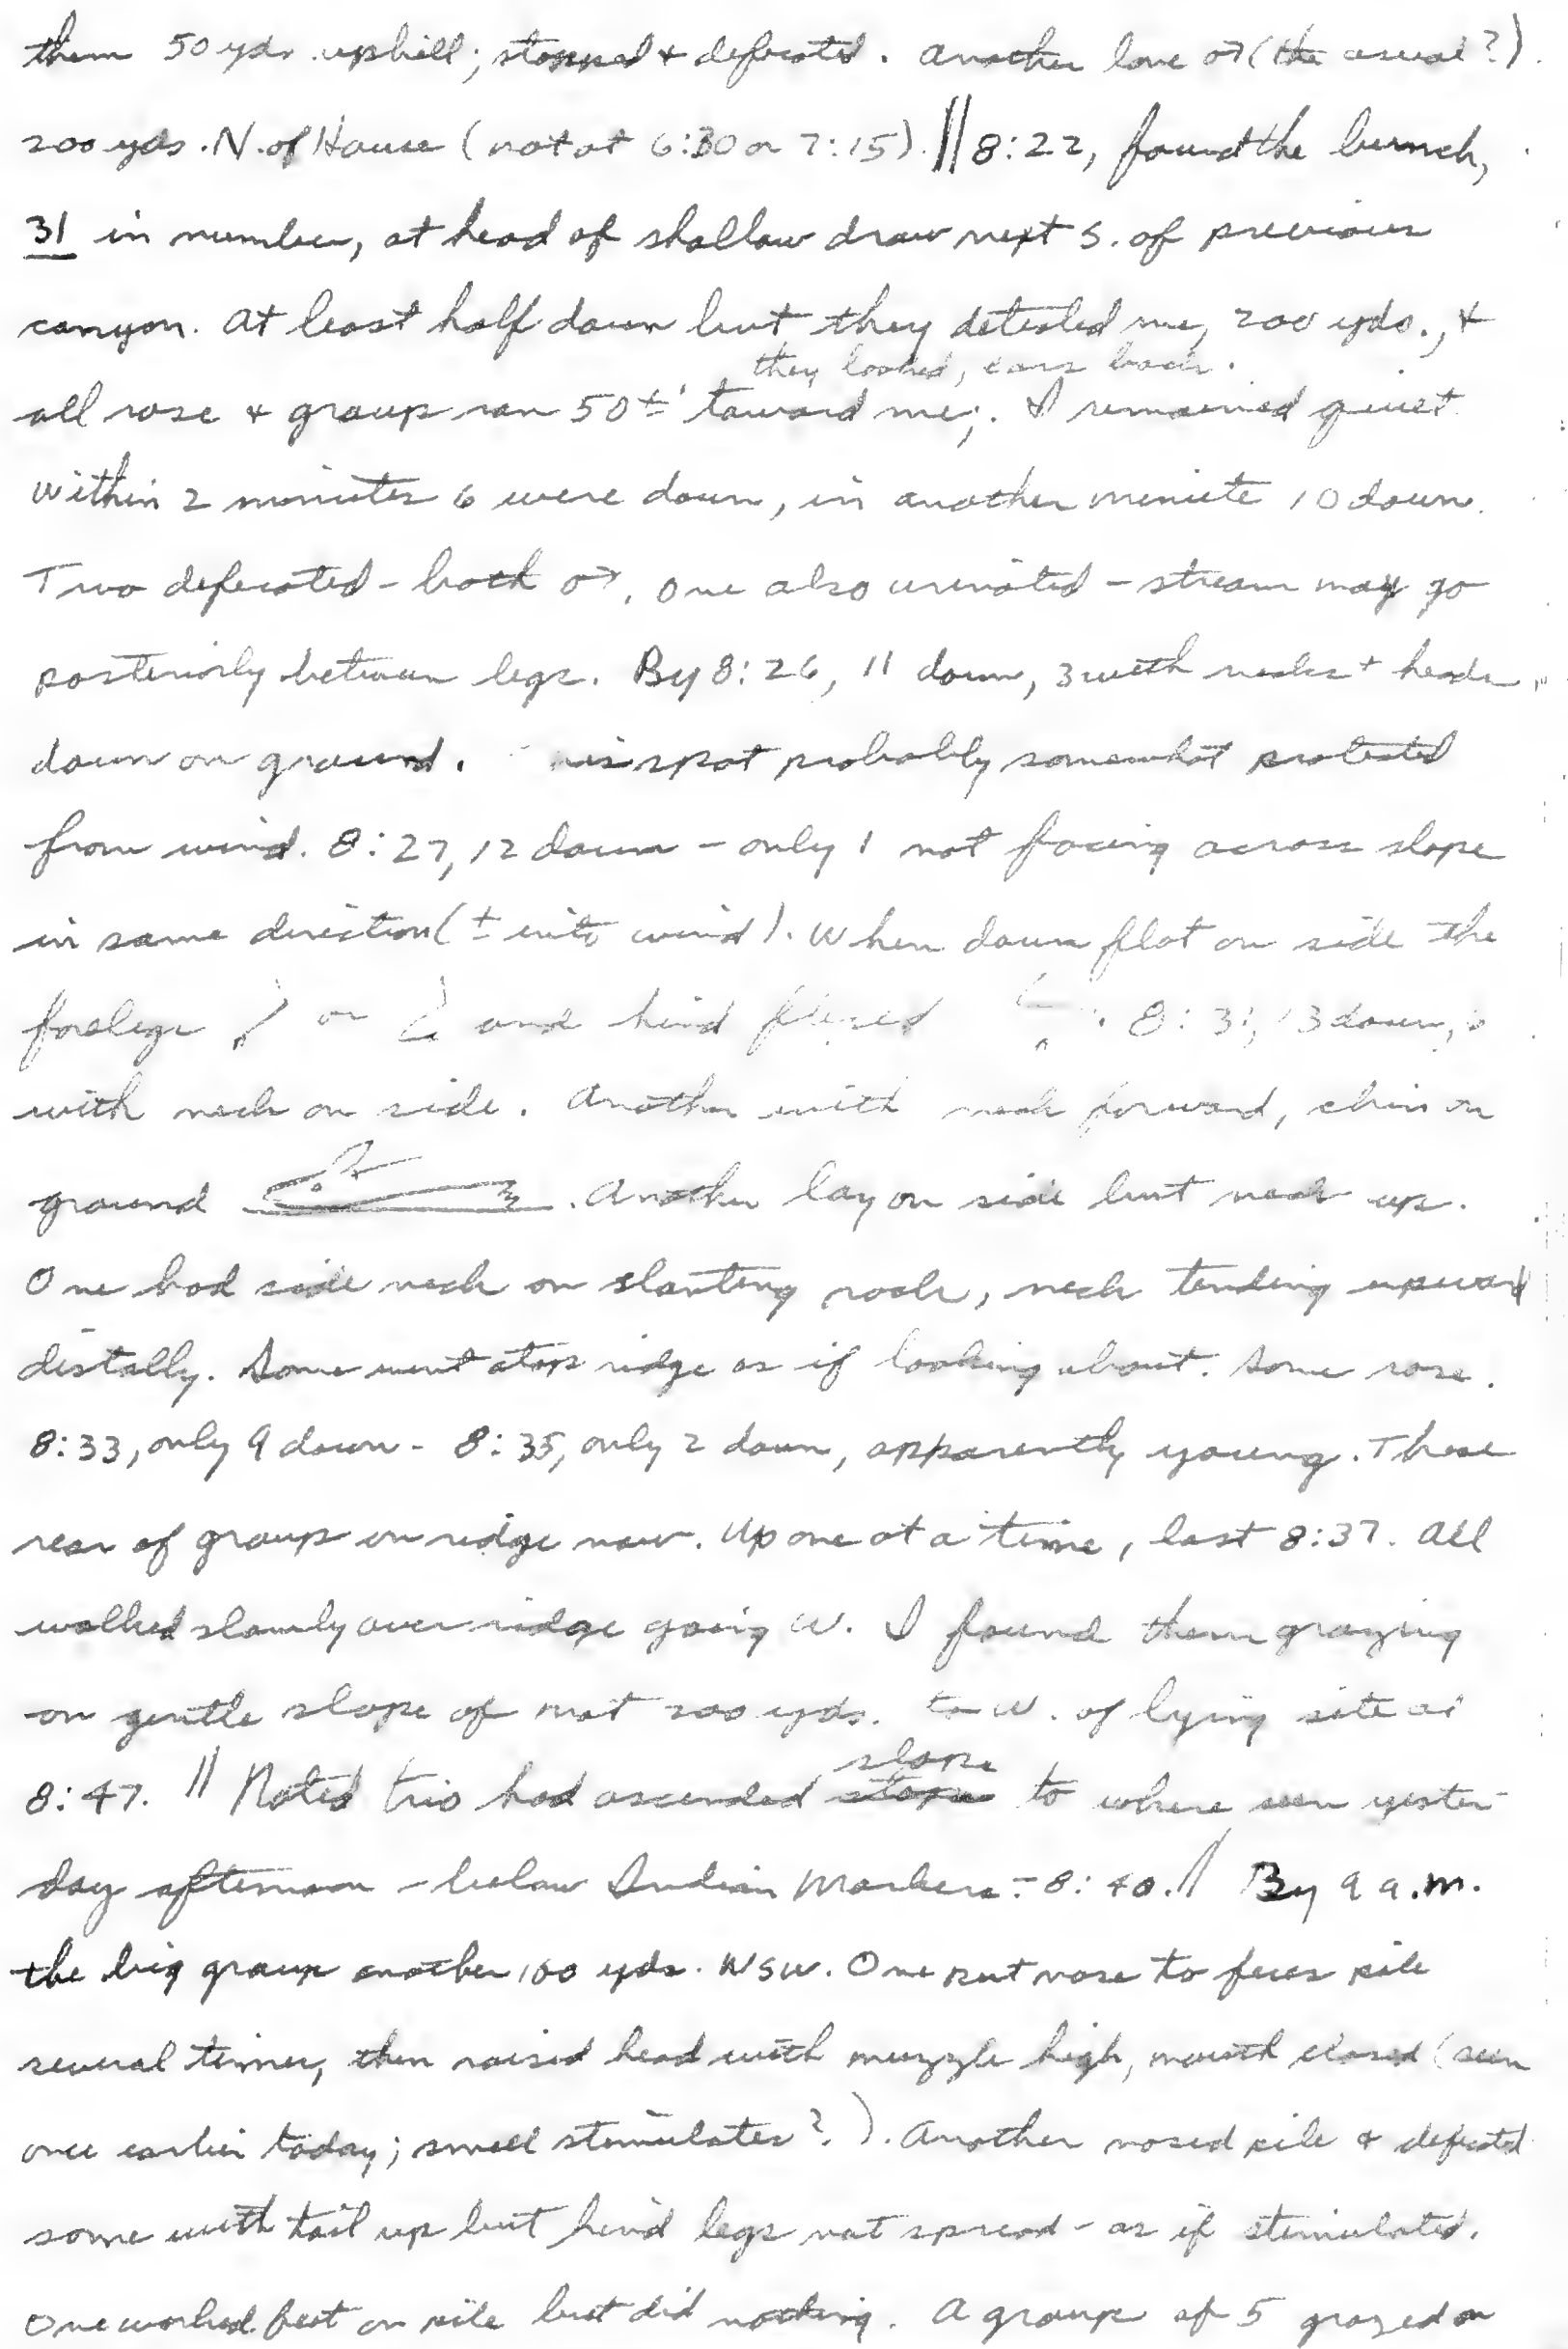 them 50 yds. uphill; stopped & defecated. Another lone ♂ (the usual?)
200 yds. N. of House (not at 6:30 or 7:15). || 8:22, found the bunch,
31 in number, at head of shallow draw next S. of previous
canyon. At least half down but they detected me, 200 yds., &
they looked, ears back.
all rose & group ran 50±' toward me;. I remained quiet
Within 2 minutes 6 were down, in another minute 10 down.
Two defecated - both ♂, one also urinated - stream may go
posteriorly between legs. By 8:26, 11 down, 3 with necks + heads
down on ground. spot probably somewhat protected
from wind. 8:27, 12 down - only 1 not facing across slope
in same direction (± into wind). When down flat on side the
forelegs or and hind flexed . 8:31, 13 down,
with neck on side. Another with neck forward, chin on
ground . Another lay on side but neck up.
One had side neck on slanting rock, neck tending upward
distally. Some went atop ridge as if looking about. Some rose.
8:33, only 9 down - 8:35, only 2 down, apparently young. These
rear of group on ridge now. Up one at a time, last 8:37. All
walked slowly over ridge going W. I found them grazing
on gentle slope of mat 200 yds. to W. of lying site at
slope
8:47. || Noted trio had ascended to where seen yester-
day afternoon - below Indian Markers - 8:40. || By 9 a.m.
the big group another 100 yds. WSW. One put nose to feces pile
several times, then raised head with muzzle high, mouth closed (seen
once earlier today; smell stimulates?). Another nosed pile & defecated
some with tail up but hind legs not spread - as if stimulated.
One worked feet on pile but did nothing. A group of 5 grazed on